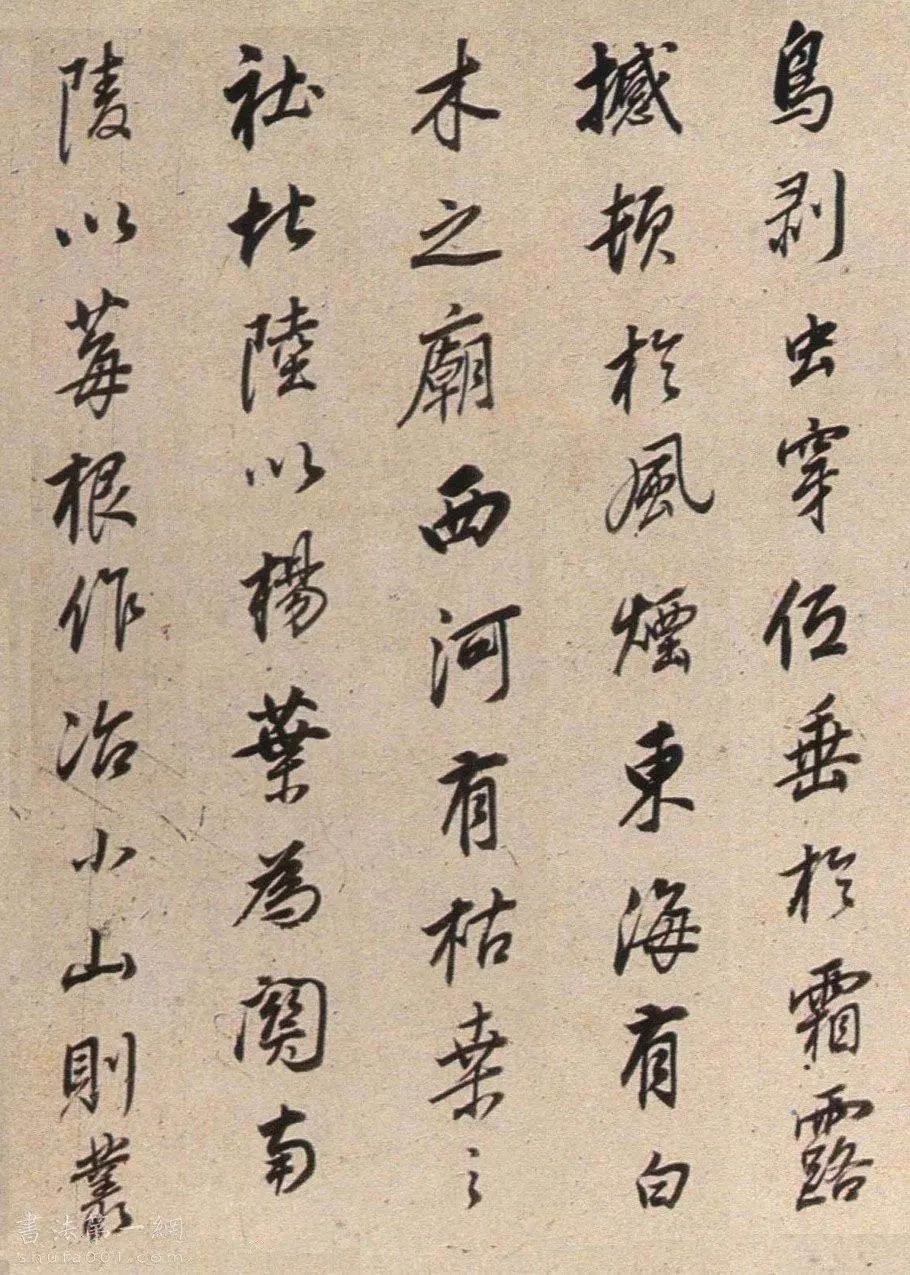 鳥剥虫穿低垂於霜露
撼頓於風煙東海有白
木之廟西河有枯桒之
社北陸以楊葉為關南
陵以莓根作冶小山則叢
書法第一網
shufa001.com